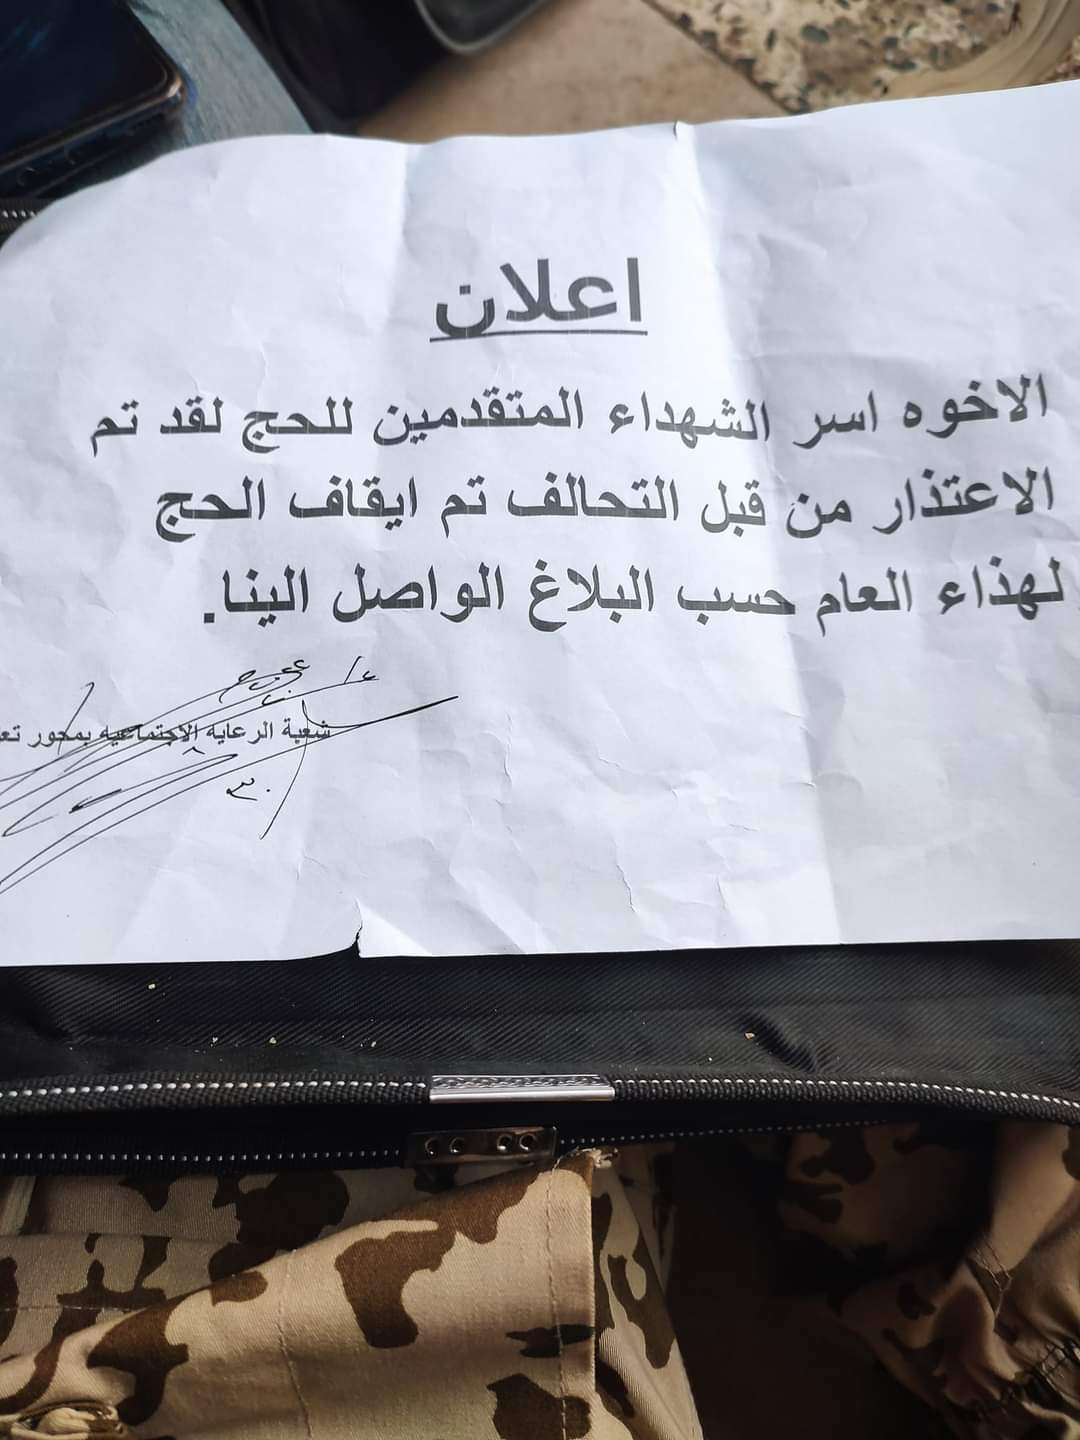 اعلان
الاخوه اسر الشهداء المتقدمين للحج لقد تم
الاعتذار من قبل التحالف تم ايقاف الحج
لهذاء العام حسب البلاغ الواصل الينا.
شعبة الرعايه الاجتماعيه بمحور تعز